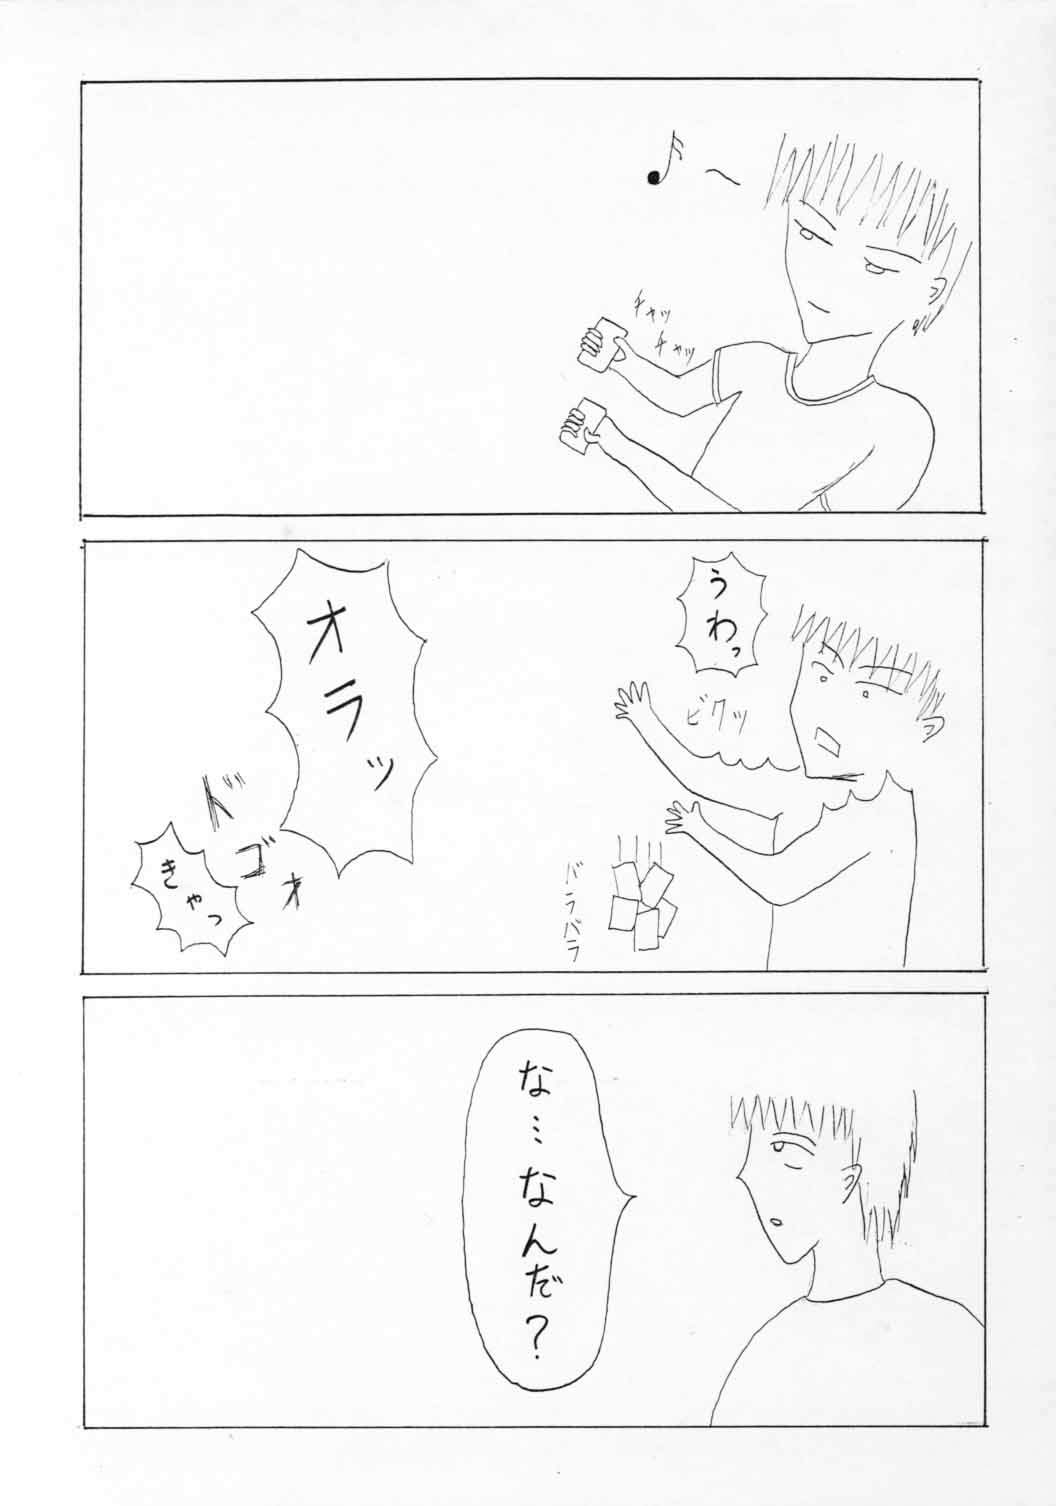 ♪〜
チャッ
チャッ
うわっ
ビクッ
バラバラ
オラッ
ドゴォ
きゃっ
な…なんだ?